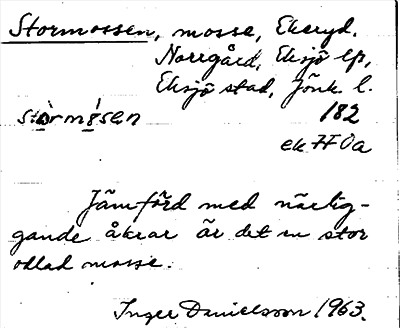 Stormossen, mosse, Ekeryd,
Norrgård, Eksjö lfs,
Eksjö stad, Jönk l.
182
ek 7F0a
Jämförd med närlig-
gande åkrar är det en stor
odlad mosse.
Inger Danielsson 1963.